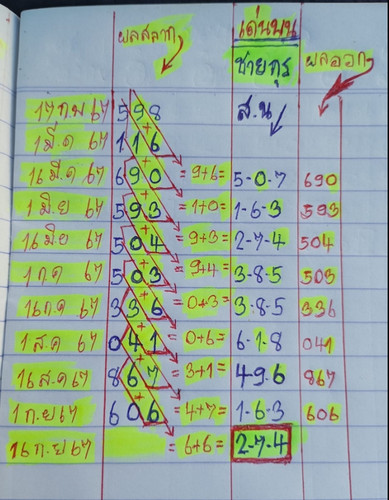 ผลสลาก เด่นบน
ชายกรุ ผลออก
17 ก.พ 67 598 ส.น
1 มี.ค 67 116
16 มี.ค 67 690 = 9+6= 5-0-7 690
1 มิ.ย 67 593 = 1+0= 1-6-3 593
16 มิ.ย 67 504 = 9+3= 2-7-4 504
1 ก.ค 67 503 = 9+4= 3-8-5 503
16 ก.ค 67 336 = 0+3= 3-8-5 336
1 ส.ค 67 041 = 0+6= 6-1-8 041
16 ส.ค 67 867 = 3+1= 4-9-6 867
1 ก.ย 67 606 = 4+7= 1-6-3 606
16 ก.ย 67 = 6+6= 2-7-4